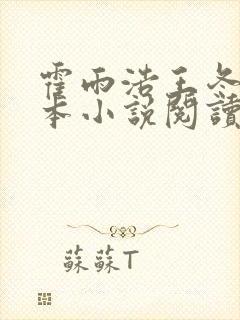 霍雨浩王冬
本小說閱讀
蘇蘇T